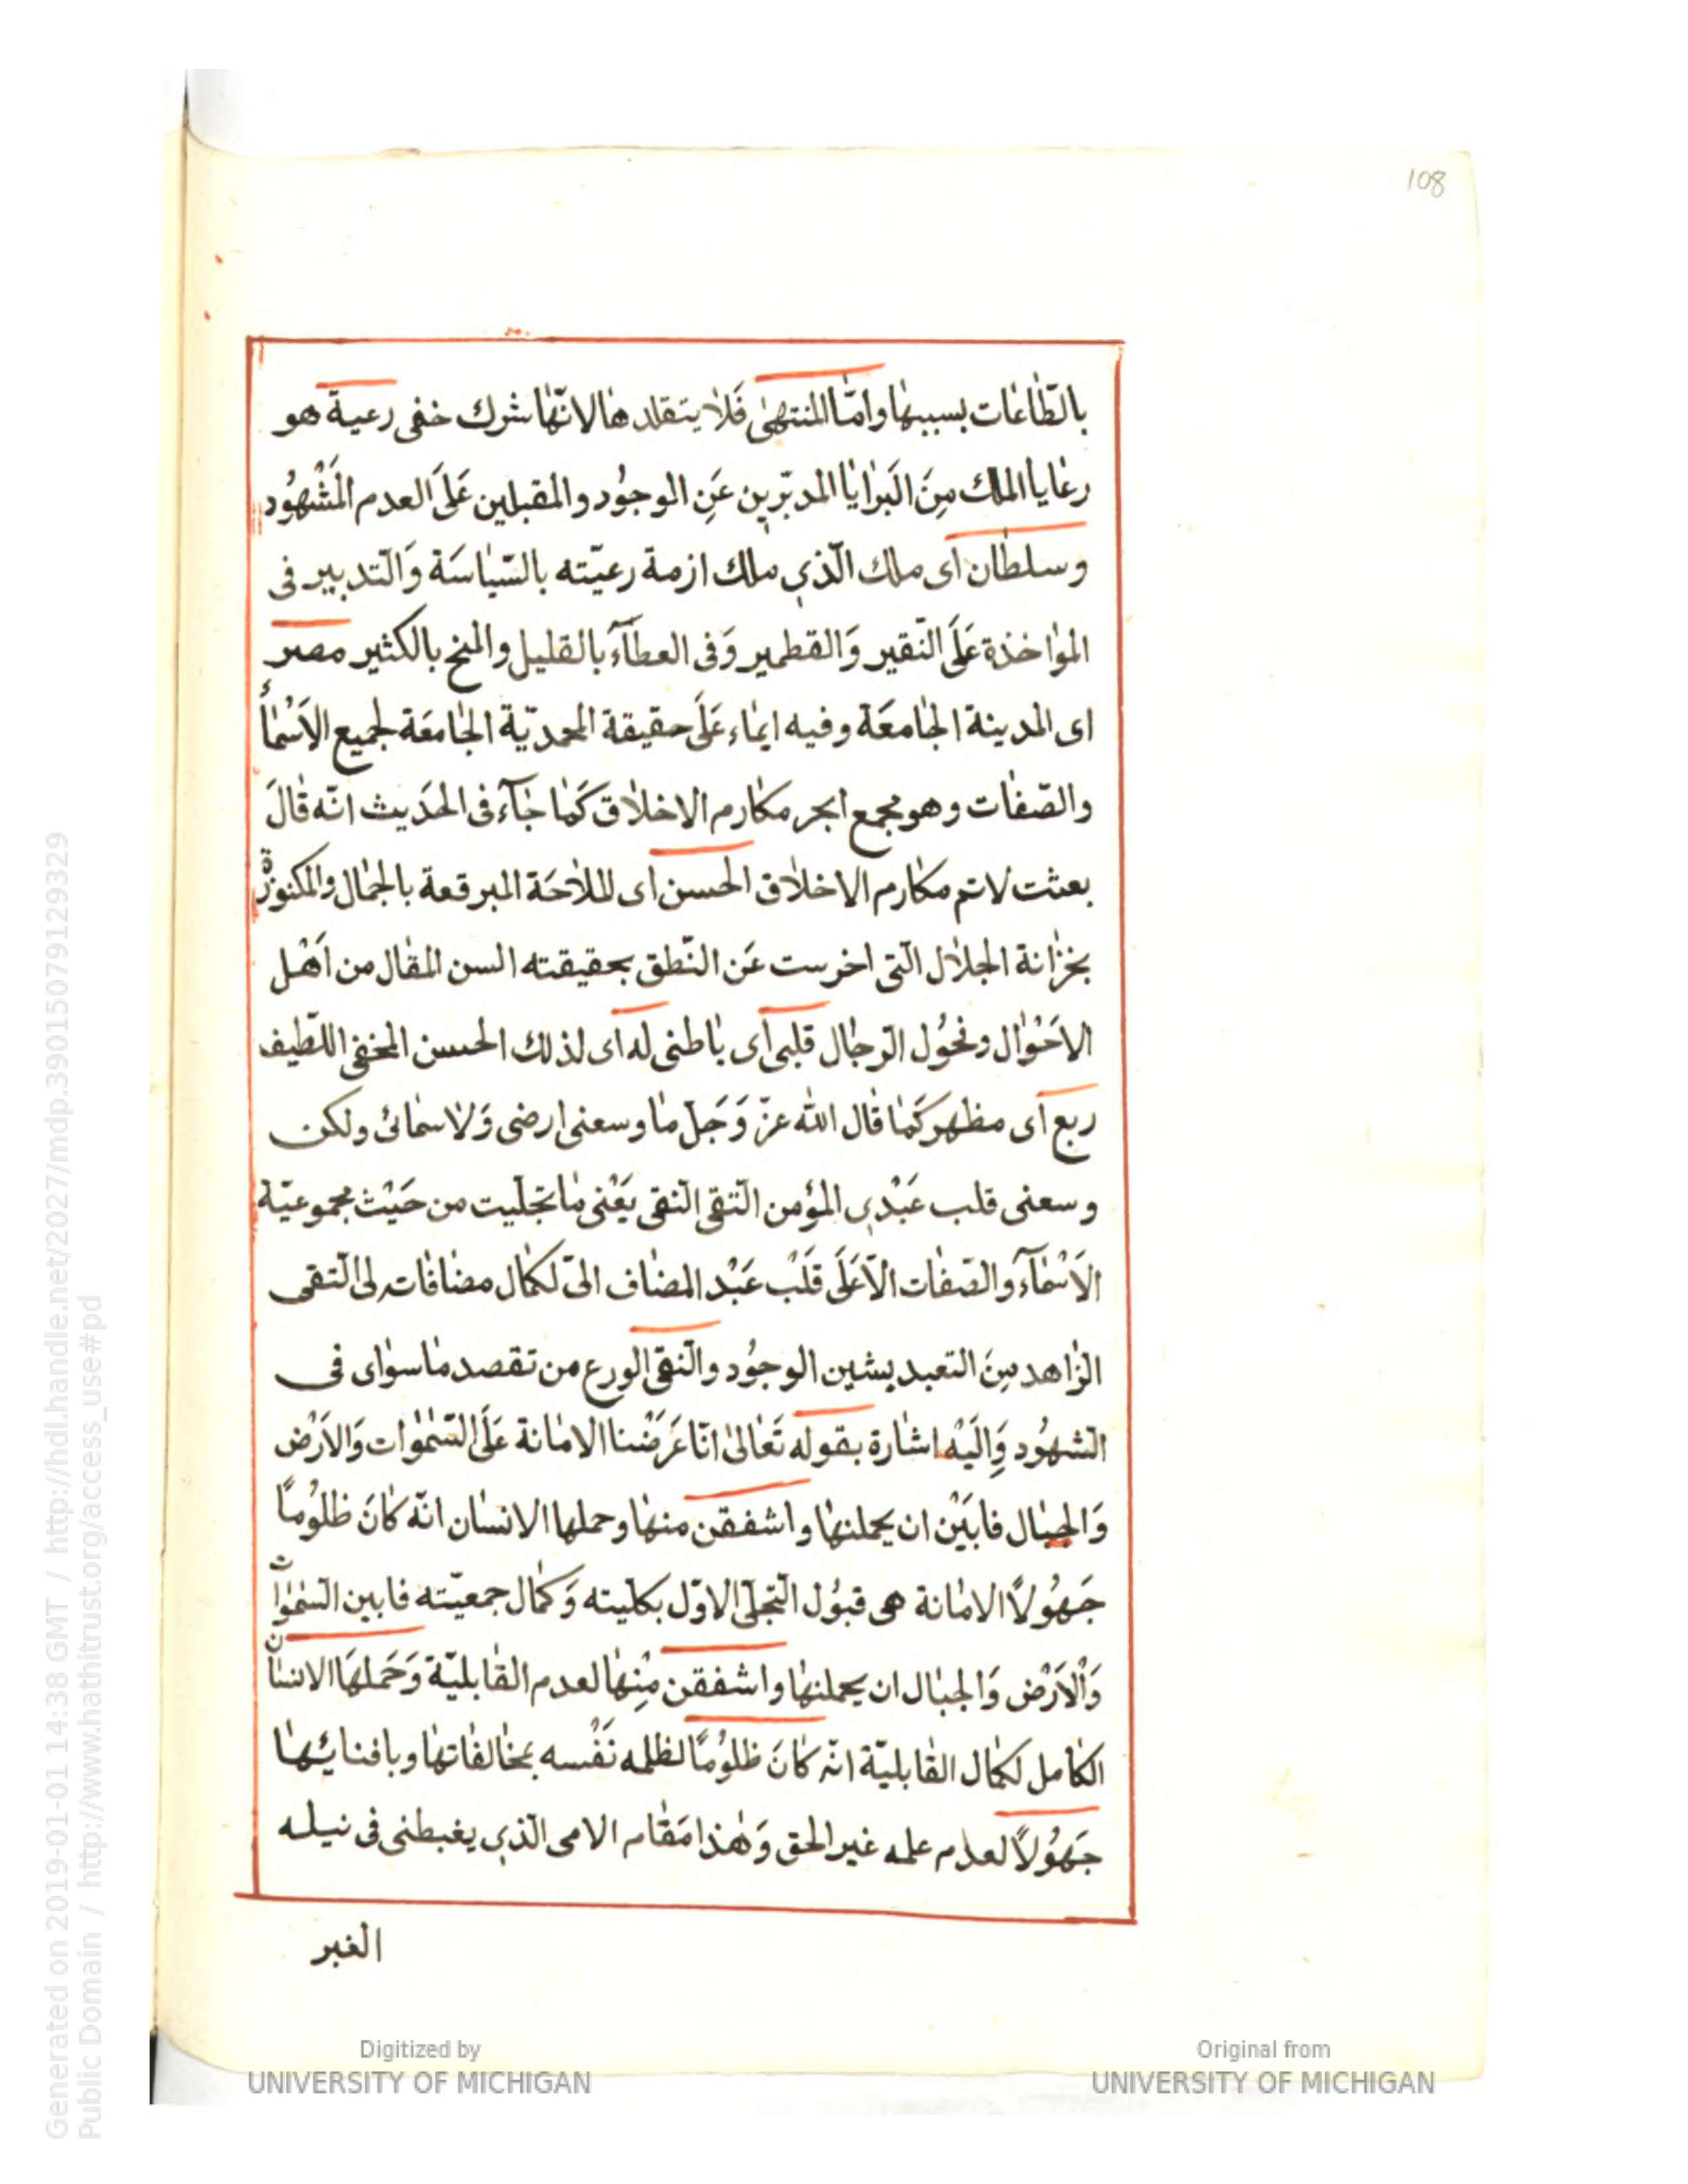 108
بالطّاعات بسببها وامّا المنتهىٰ فَلا يتقلد ها لانّها شرك خفى رعية هو
رعايا الملك مِنَ البَرايا المدبّرين عَنِ الوجوُد والمقبلين عَلَى العدم المَشْهُود
وسلطان اى ملك الّذي ملك ازمة رعيّته بالسّياسَة وَالتدبير فى
المواخذة عَلَى النّقير وَالقطمير وَفى العطآء بالقليل والمنح بالكثير مصر
اى المدينة الجامعَة وفيه ايماء عَلَى حقيقة المحمديّة الجامعَة لجميع الاَسْمأ
والصّفات وهو مجمع ابحر مكارم الاخلاق كَما جَآء فى الحَديث انّه قالَ
بعثت لاتم مكارم الاخلاق الحسن اى للملاحَة المبرقعة بالجمال والمكنوزة
بخزانة الجلال الّتى اخرست عَن النّطق بحقيقته السن المقال من اَهْل
الاحَوْال وفحُول الرّجال قلبى اى باطنى له اى لذلك الحسن المخفى اللّطيف
ربع اى مظهر كَما قال الله عزّ وَجَلّ ما وسعنى ارضى وَلا سمائى ولكن
وسعنى قلب عَبْدي المؤمن التّقى النّقى يَعْنى ما تجلّيت من حَيْث مجموعيّة
الاَسْمآء والصّفات الّا عَلَى قَلْب عَبْد المضاف الىّ لكمال مضافات لى التّقى
الزاهد مِنَ التعبد بشين الوجوُد والنّقى الورع من تقصد ما سواى فى
الشهوُد وَاِلَيْه اشارة بقوله تَعالىٰ انّا عَرَضْنا الامانة عَلَى السّمٰوات وَالاَرْض
وَالجبال فابَيْن ان يحملنها واشفقن منها وحملها الانسان انّه كانَ ظلوُمًا
جَهُولًا الامانة هى قبوُل التّجلّى الاوّل بكلّيته وَكمال جمعيّته فابين السّمٰوات
وَالْاَرْض وَالجبال ان يحملنها واشفقن مِنْها لعدم القابليّة وَحَملهَا الانسان
الكامل لكمال القابليّة انّه كانَ ظلوُمًا لظلمه نَفْسه بمخالفاتها وبافنائها
جَهُولًا لعدم علمه غير الحق وَهٰذا مَقام الامى الّذي يغبطنى فى نيله
الغير
Digitized by
UNIVERSITY OF MICHIGAN
Original from
UNIVERSITY OF MICHIGAN
Generated on 2019-01-01 14:38 GMT / http://hdl.handle.net/2027/mdp.39015079129329
Public Domain / http://www.hathitrust.org/access_use#pd